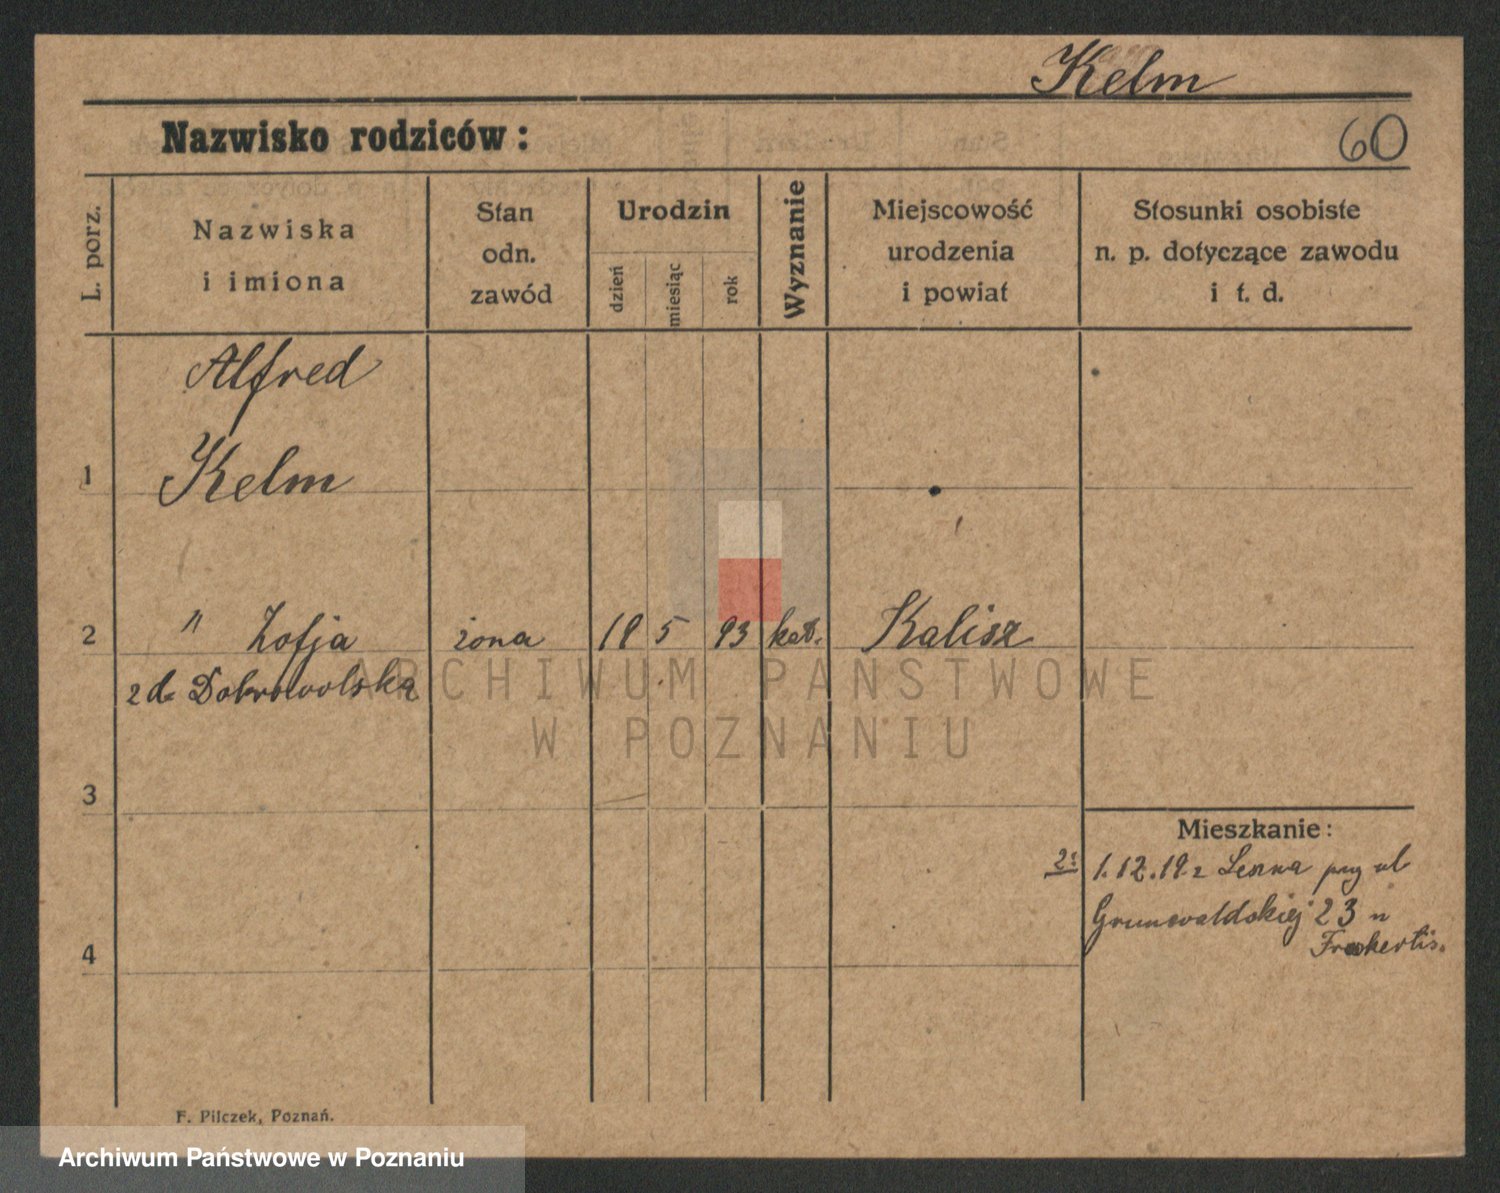 Kelm
Nazwisko rodziców:
60
L. porz.
Nazwiska
i imiona
Stan
odn.
zawód
Urodzin
dzień
miesiąc
rok
Wyznanie
Miejscowość
urodzenia
i powiat
Stosunki osobiste
n. p. dotyczące zawodu
i t. d.
Alfred
1 Kelm
2 " Zofja żona 19 5 93 kat. Kalisz
z d. Dobrowolska
ARCHIWUM PAŃSTWOWE
W POZNANIU
3
Mieszkanie:
1.12.19 z Leszna przy ul
Grunwaldskiej 23 u
4
F. Pilczek, Poznań.
Archiwum Państwowe w Poznaniu